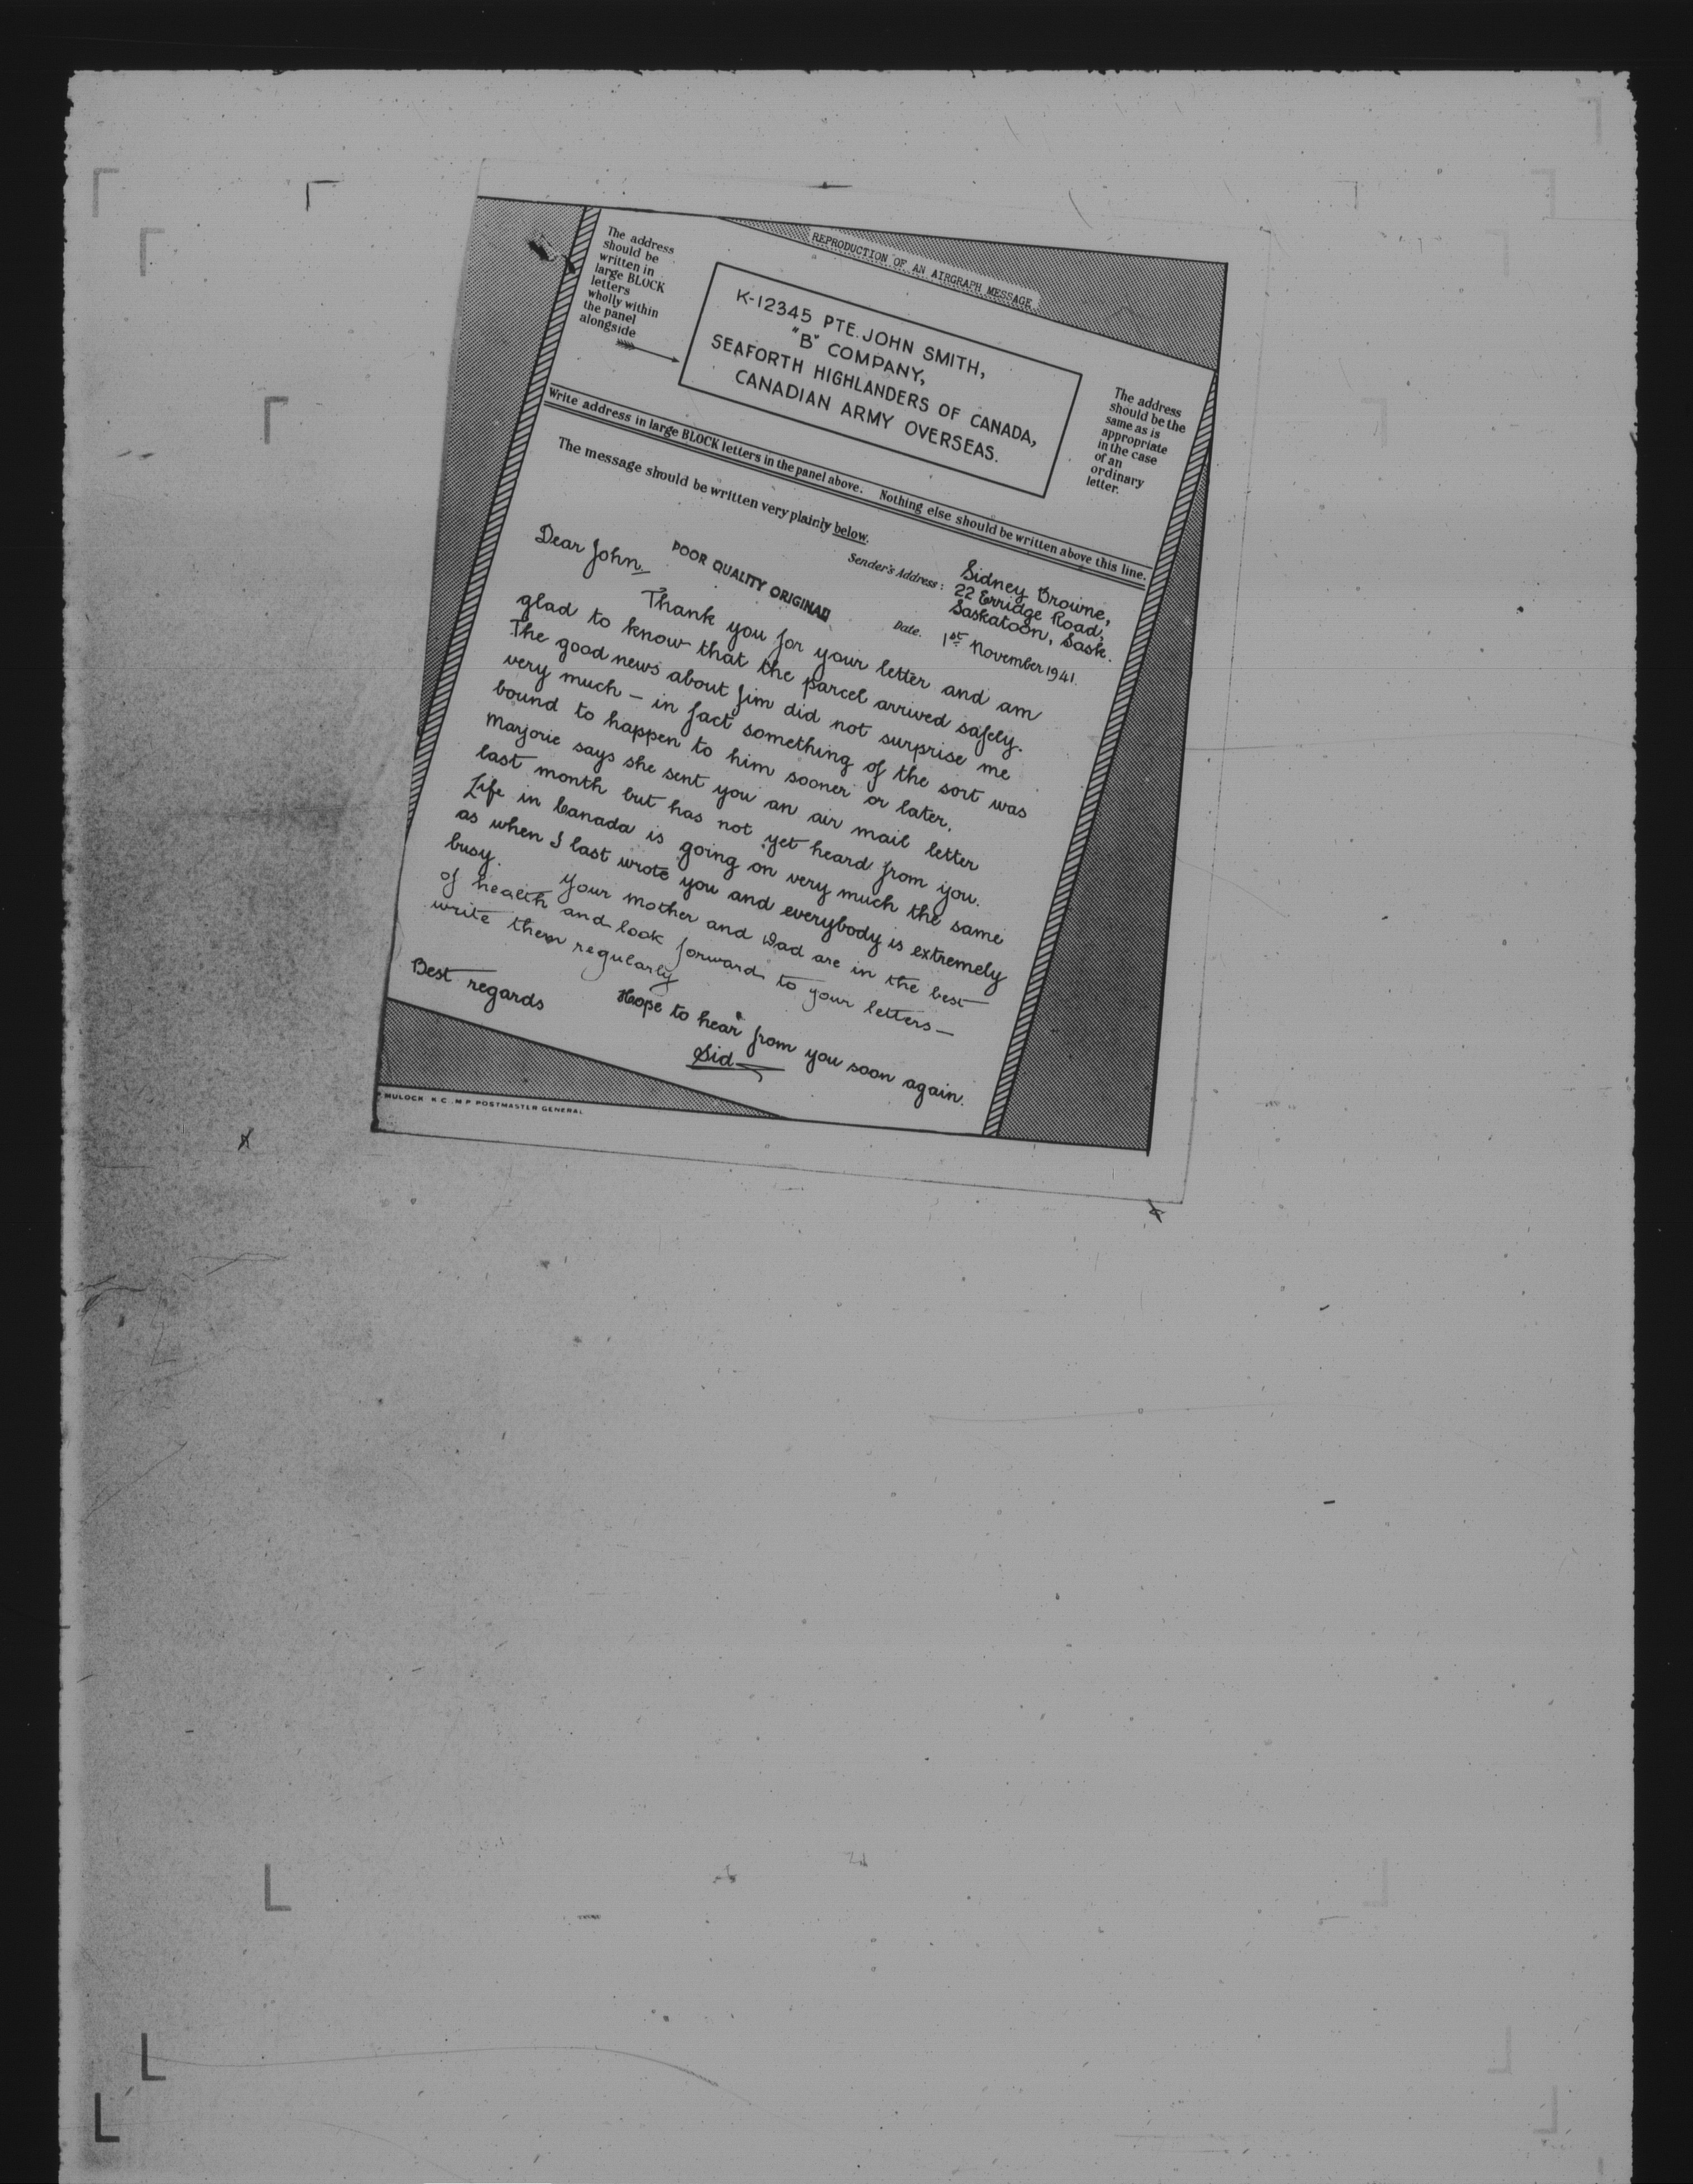 REPRODUCTION OF AN AIRGRAPH MESSAGE
The address
should be
written in
large BLOCK
letters
wholly within
the panel
alongside
K-12345 PTE. JOHN SMITH,
"B" COMPANY,
SEAFORTH HIGHLANDERS OF CANADA,
CANADIAN ARMY OVERSEAS.
The address
should be the
same as is
appropriate
in the case
of an
ordinary
letter.
Write address in large BLOCK letters in the panel above. Nothing else should be written above this line.
The message should be written very plainly below.
Sender's Address: Sidney Browne,
22 Erridge Road,
Saskatoon, Sask.
Date. 1st November 1941.
POOR QUALITY ORIGINAL
Dear John,
Thank you for your letter and am
glad to know that the parcel arrived safely.
The good news about Jim did not surprise me
very much – in fact something of the sort was
bound to happen to him sooner or later.
Marjorie says she sent you an air mail letter
last month but has not yet heard from you.
Life in Canada is going on very much the same
as when I last wrote you and everybody is extremely
busy. Your mother and Dad are in the best
of health and look forward to your letters –
write them regularly
Hope to hear from you soon again.
Best regards
Sid
MULOCK K.C. M.P. POSTMASTER GENERAL